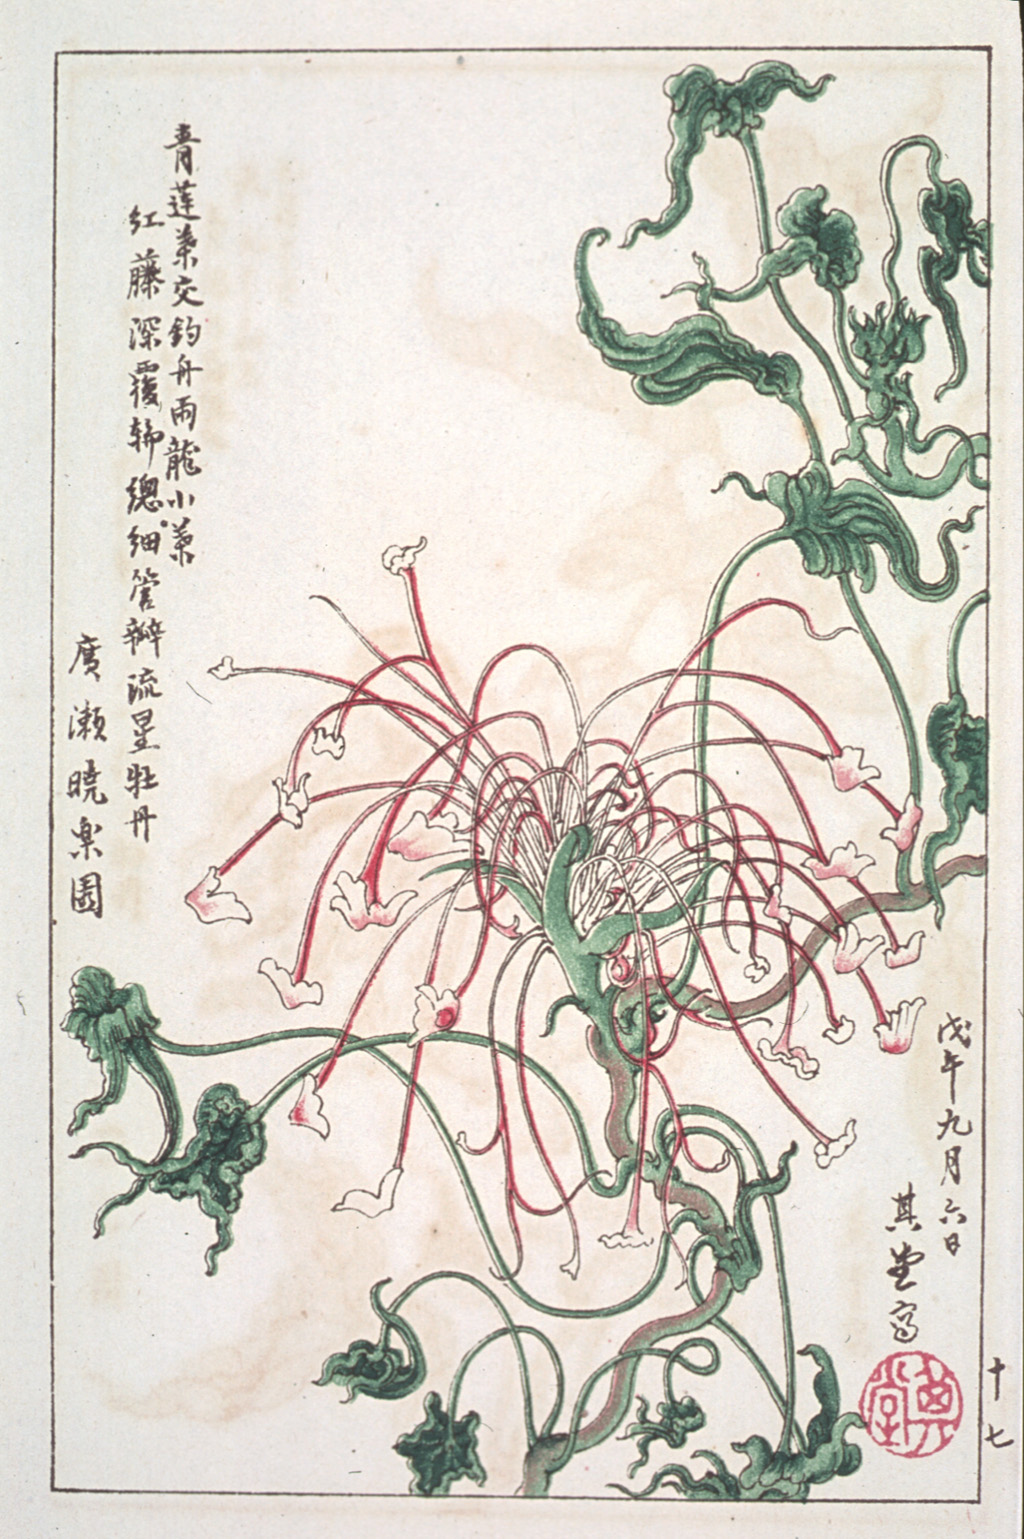 青蓮葉交釣舟雨龍小葉
紅藤深覆輪總細管瓣流星牡丹
廣瀬曉楽園
戊午九月六日
其堂写
十七